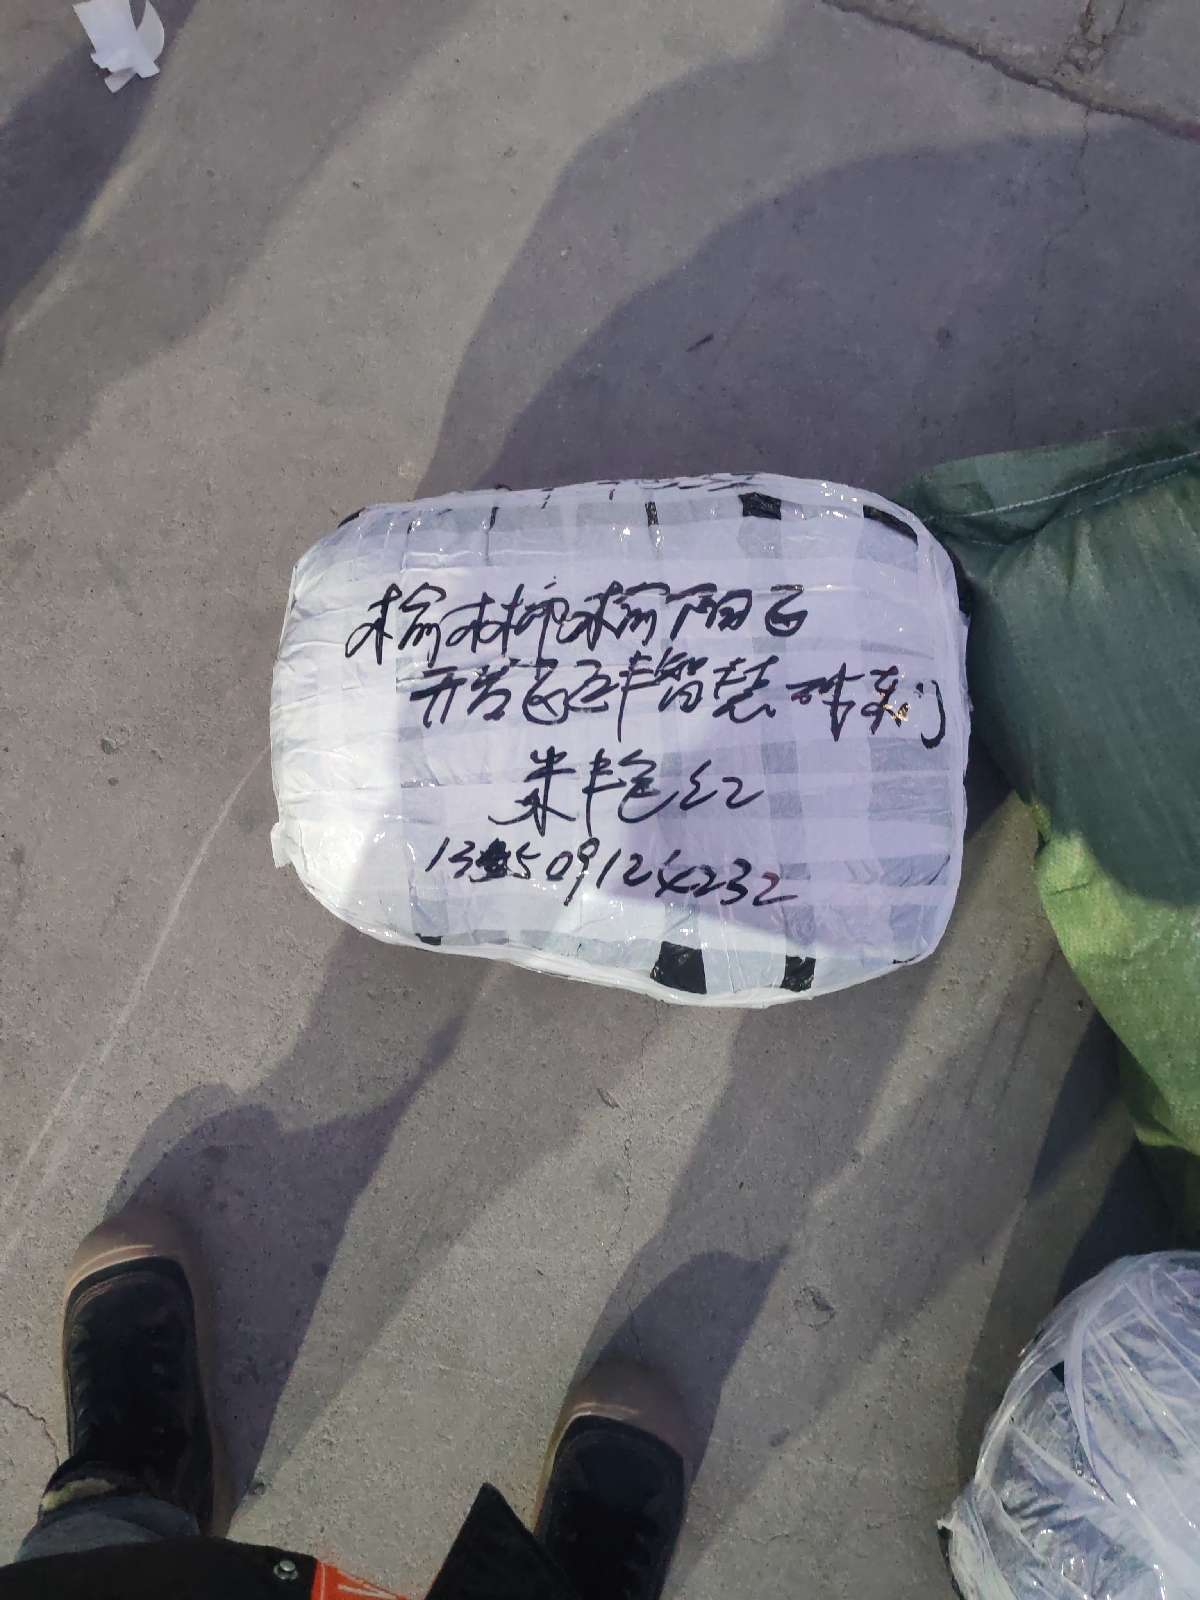 榆林市榆阳区
开发区正丰智慧城东门
朱艳红
13509124232